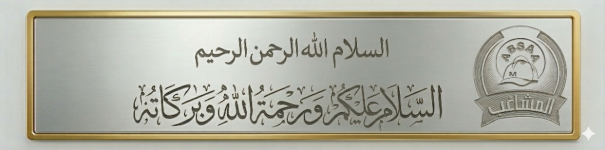 السلام الله الرحمن الرحيم
السَّلَامُ عَلَيْكُمْ وَرَحْمَةُ اللهُ وَبَرَكَاتُهُ
ABSAA
M
المشاغب